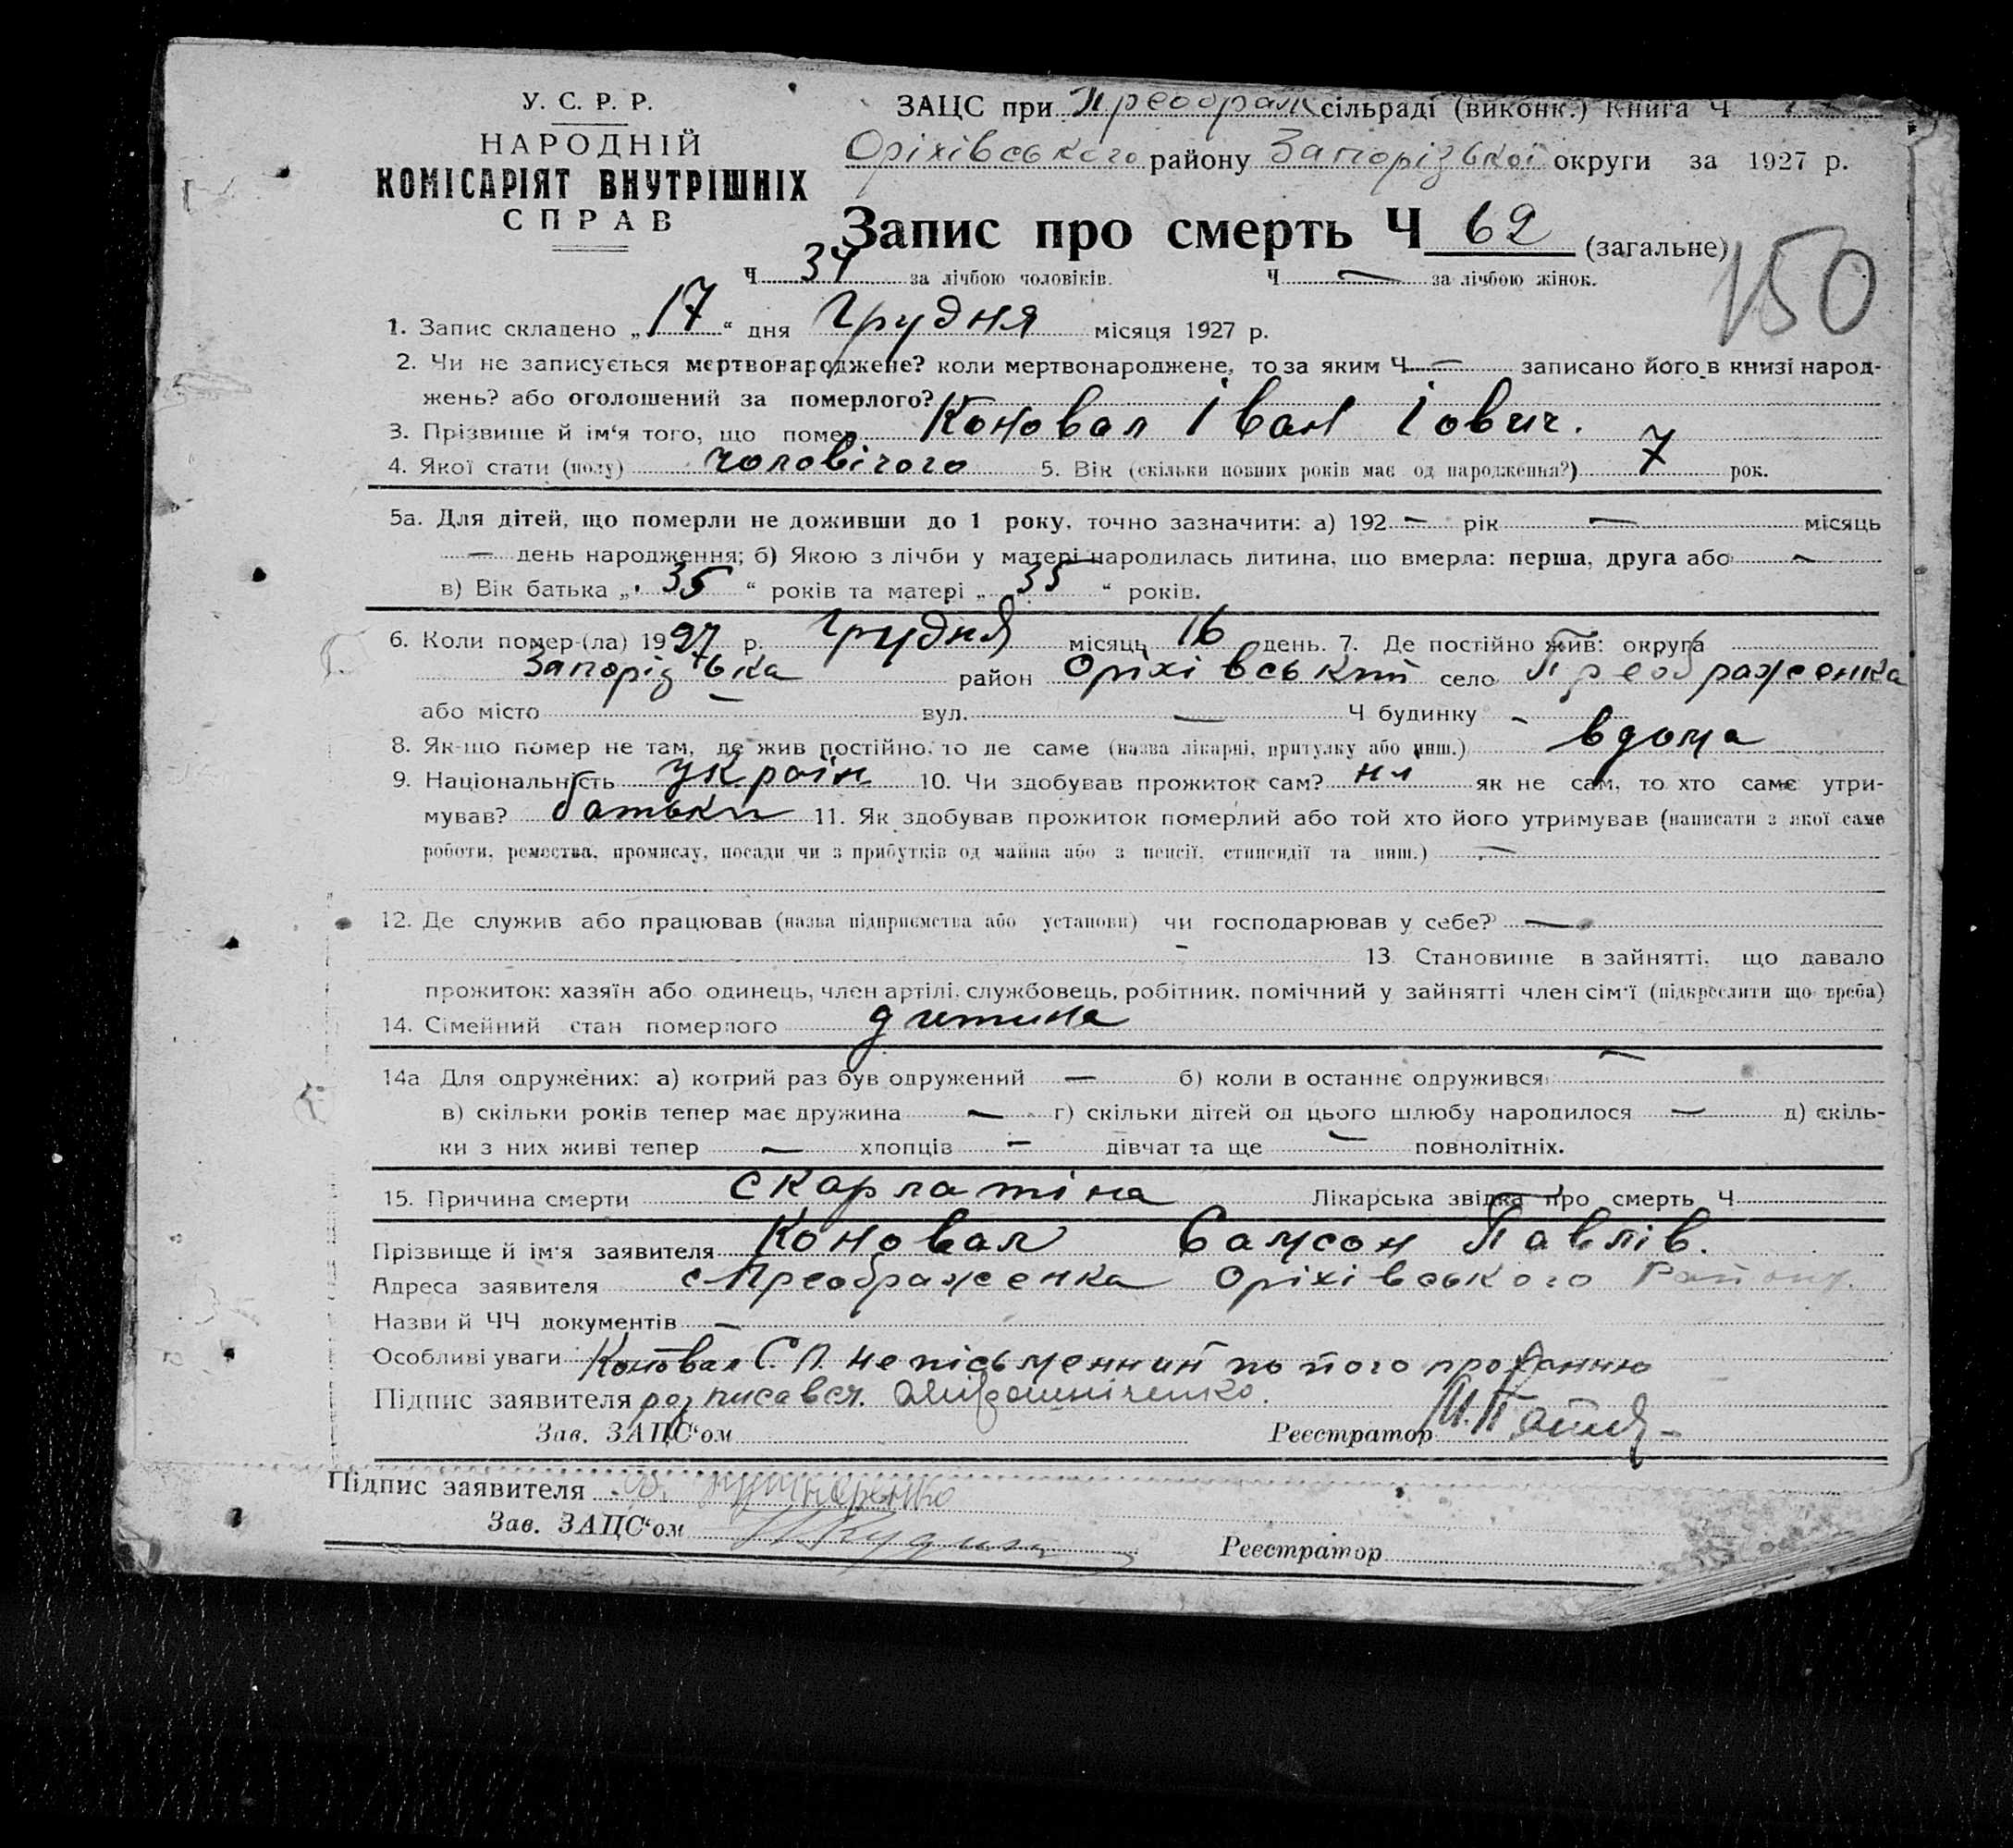 У. С. Р. Р.
НАРОДНІЙ
КОМІСАРІЯТ ВНУТРІШНІХ
СПРАВ
ЗАЦС при Преображ сільраді (виконк.) Книга Ч
Оріхівського району Запорізької округи за 1927 р.
Запис про смерть Ч 62 (загальне)
150
Ч 34 за лічбою чоловіків. Ч — за лічбою жінок.
1. Запис складено „17“ дня Грудня місяця 1927 р.
2. Чи не записується мертвонароджене? коли мертвонароджене, то за яким Ч — записано його в книзі народ-
жень? або оголошений за померлого?
3. Прізвище й ім‘я того, що помер Коновал Іван Іович.
4. Якої стати (полу) чоловічого 5. Вік (скільки повних років має од народження?) 7 рок.
5а. Для дітей, що померли не доживши до 1 року, точно зазначити: а) 192 — рік — місяць
— день народження; б) Якою з лічби у матері народилась дитина, що вмерла: перша, друга або —
в) Вік батька „35“ років та матері „35“ років.
6. Коли помер-(ла) 1927 р. Грудня місяць 16 день. 7. Де постійно жив: округа
Запорізька район Оріхівський село Преображенка
або місто — вул. — Ч будинку -
8. Як-що помер не там, де жив постійно, то де саме (назва лікарні, притулку або инш.) вдома
9. Національність україн 10. Чи здобував прожиток сам? ні як не сам, то хто саме утри-
мував? батьки 11. Як здобував прожиток померлий або той хто його утримував (написати з якої саме
роботи, ремества, промислу, посади чи з прибутків од майна або з пенсії, стипендії та инш.) —
12. Де служив або працював (назва підприємства або установи) чи господарював у себе? —
13. Становище в зайнятті, що давало
прожиток: хазяїн або одинець, член артілі, службовець, робітник, помічний у зайнятті член сім‘ї (підкреслити що треба)
14. Сімейний стан померлого дитина
14а Для одружених: а) котрий раз був одружений — б) коли в останнє одружився —
в) скільки років тепер має дружина — г) скільки дітей од цього шлюбу народилося — д) скіль-
ки з них живі тепер — хлопців — дівчат та ще — повнолітніх.
15. Причина смерти скарлатіна Лікарська звідка про смерть Ч
Прізвище й ім‘я заявителя Коновал Самсон Павлів.
Адреса заявителя с Преображенка Оріхівського Району.
Назви й ЧЧ документів —
Особливі уваги Коновал С. П. не пісьменний по його проханню
Підпис заявителя розписався.
Зав. ЗАЦС‘ом Реєстратор
Підпис заявителя
Зав. ЗАЦС‘ом Реєстратор